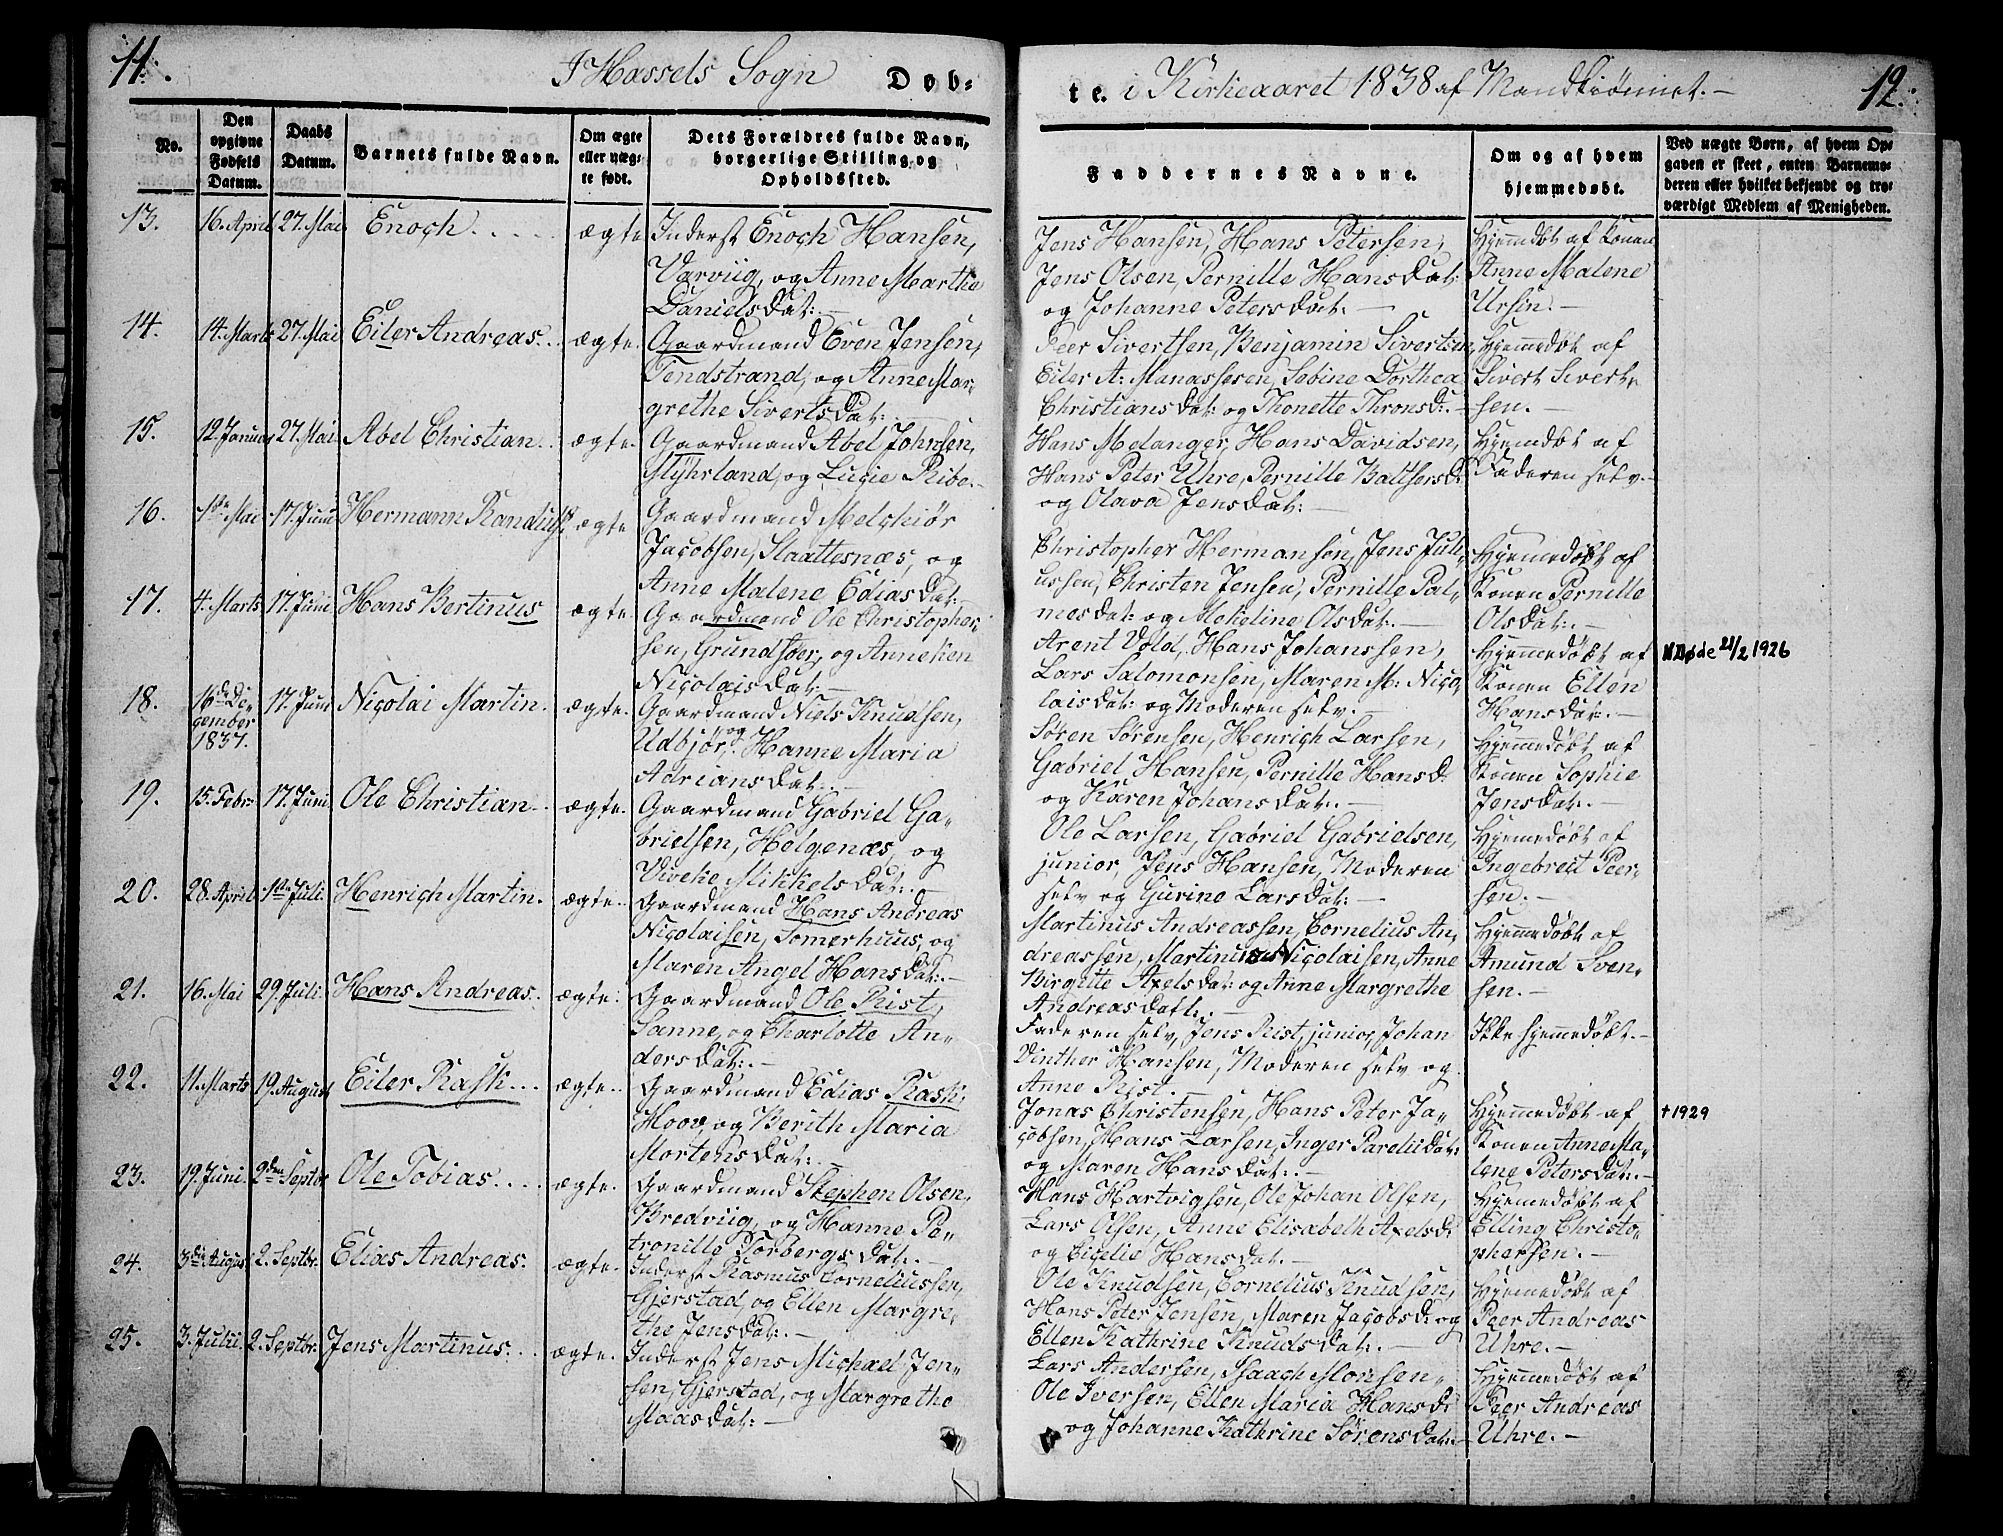 11.
I Hassels Sogn Døb-
No.
Den opgivne Fødsels Datum.
Daabs Datum.
Barnets fulde Navn.
Om ægte eller uægte født.
Dets Forældres fulde Navn, borgerlige Stilling og Opholdssted.
13. 16. April 27. Mai Enoch ægte Inderst Enoch Hansen,
Varviig, og Anne Marthe
Daniels Dat:
14. 14. Marts 27. Mai Eiler Andreas. ægte. Gaardmand Even Jensen,
Tendstrand, og Anne Mar-
grethe Siverts Dat:
15. 12. Januar 27. Mai Abel Christian ægte. Gaardmand Abel Johnsen,
Myhrland, og Lucie Ribe.
16. 1ste Mai 17. Juni Hermann ægte Gaardmand Melchiør
Jacobsen, Slaattesnæs, og
Anne Malene Edias Dat:
17. 4. Marts 17. Juni Hans Bertinus ægte. Gaardmand Ole Christopher-
sen, Grundfør, og Anneken
Nicolais Dat:
18. 16de De-
cember
1837. 17. Juni Nicolai Martin. ægte. Gaardmand Niels Knudsen,
Udbjør, og Hanne Maria
Adrians Dat:
19. 15. Febr: 17. Juni Ole Christian ægte. Gaardmand Gabriel Ga-
brielsen, Holgenæs, og
Viveke Mikkels Dat:
20. 28. April 1ste Juli. Henrich Martin. ægte. Gaardmand Hans Andreas
Nicolaisen, Somerhuus, og
Maren Angel Hans Dat:
21. 16. Mai 29. Juli. Hans Andreas. ægte. Gaardmand Ole Rist,
Sanne, og Charlotte An-
ders Dat:
22. 11. Marts 19. August Eiler Rask ægte. Gaardmand Edias Rask,
Hoov, og Berith Maria
Mortens Dat:
23. 19. Juni. 2den Septbr Ole Tobias ægte. Gaardmand Stephen Olsen,
Bredviig, og Hanne Pe-
tronille Torbergs Dat:
24. 3die August 2. Septbr. Elias Andreas. ægte. Inderst Rasmus Corneliussen,
Gjerstad, og Ellen Margre-
the Jens Dat:
25. 3. Juli. 2. Septbr. Jens Martinus ægte. Inderst Jens Michael Jen-
sen, Gjerstad, og Margrethe
Maas Dat:
te. i Kirkeaaret 1838 af Mandkiønnet.
12.
Faddernes Navne.
Om og af hvem hjemmedøbt.
Ved uægte Børn, af hvem Op-
gaven er skeet, enten Barnemo-
deren eller hvilket bekjendt og tro-
værdigt Medlem af Menigheden.
Jens Hansen, Hans Petersen, Hjemdøbt af Konen
Jens Olsen, Pernille Hans Dat: Anne Malene
og Johanne Peters Dat: Ursin.
Peer Sivertsen, Benjamin Sivertsen, Hjemmedøbt af
Eiler A: Manassesen, Sebine Dorthea Sivert Sivert-
Christians Dat: og Thonette Throns D: sen.
Hans Melanger, Hans Davidsen, Hjemdøbt af
Hans Peter Uhre, Pernille Baltsers D: Faderen selv.
og Olava Jens Dat:
Christopher Hermansen, Jens Juli- Hjemmedøbt af
ussen, Christen Jensen, Pernille Pal- Konen Pernille
mes Dat: og Mekeline Ols Dat: Ols Dat:
Arent Vold, Hans Johanssen, Hjemmedøbt af Døde 21/2 1926
Lars Salomonsen, Maren M: Nico- Konen Ellen
lais Dat: og Moderen selv. Hans Dat:
Søren Sørensen, Henrich Larsen, Hjemmedøbt af
Gabriel Hansen, Pernille Hans D: Konen Sophie
og Karen Johans Dat: Jens Dat:
Ole Larsen, Gabriel Gabrielsen, Hjemmedøbt af
junior, Jens Hansen, Moderen Ingebret Peer-
selv og Gurine Lars Dat: sen.
Martinus Andreassen, Cornelius An- Hjemmedøbt af
dreassen, Martinus Nicolaisen, Anne Amund Sven-
Birgitte Axels Dat: og Anne Margrethe sen.
Andreas Datt:
Faderen selv, Jens Rist, junior, Johan Ikke hjemmedøbt.
Vinther Hansen, Moderen selv og
Anne Rist.
Jonas Christensen, Hans Peter Ja- Hjemmedøbt af † 1929
cobsen, Hans Larsen, Inger Parelii Dat: Konen Anne Ma-
og Maren Hans Dat: lene Peters Dat:
Hans Hartvigsen, Ole Johan Olsen, Hjemmedøbt af
Lars Olsen, Anne Elisabeth Axels D: Elling Christo-
og Cicelie Hans Dat. phersen.
Ole Knudsen, Cornelius Knudsen, Hjemmedøbt af
Hans Peter Jensen, Maren Jacobs D: og Peer Andreas
Ellen Kathrine Knuds Dat: Uhre.
Lars Andersen, Isaach Monsen Hjemmedøbt af
Ole Iversen, Ellen Maria Hans D: Peer Andreas
og Johanne Kathrine Sørens Dat: Uhre.